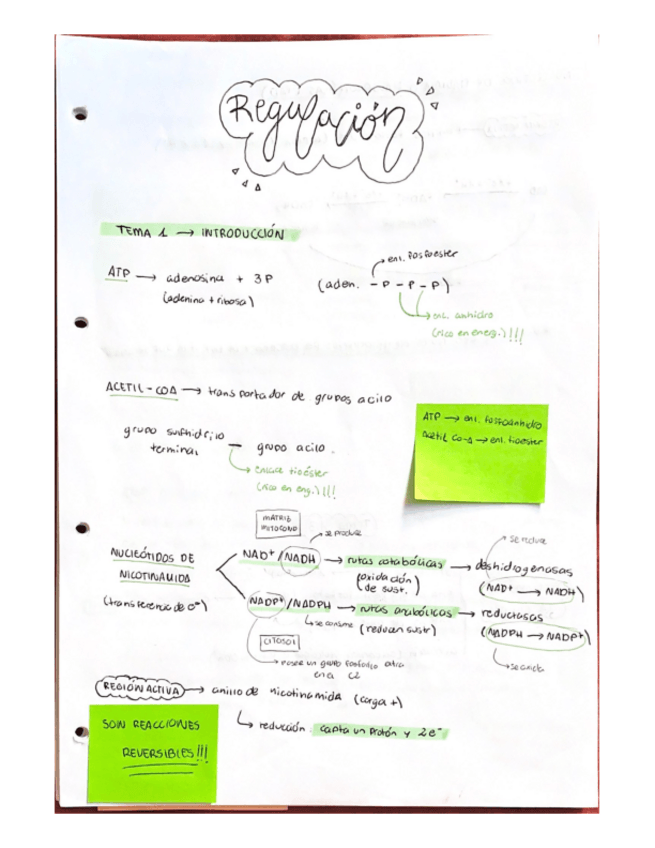 Regulación
TEMA 1 → INTRODUCCIÓN
enl. fosfoester
ATP → adenosina + 3P (aden. - P - P - P)
(adenina + ribosa)
enl. anhidro
(rico en energ.) !!!
ACETIL-COA → transportador de grupos acilo
ATP → enl. fosfoanhidro
Acetil Co-A → enl. tioester
grupo sulfhidrilo
terminal — grupo acilo.
enlace tioéster
(rico en eng.) !!!
MATRIZ
MITOCOND
se produce
se reduce
NUCLEÓTIDOS DE
NICOTINAMIDA
(transferencia de e-)
NAD+/NADH → rutas catabólicas → deshidrogenasas
(oxidación
de sustr.)
(NAD+ → NADH)
NADP+/NADPH → rutas anabólicas → reductasas
se consume (reducen sustr)
(NADPH → NADP+)
CITOSOL
se oxida
posee un grupo fosfórico
en el C2
REGIÓN ACTIVA → anillo de nicotinamida (carga +)
reducción: capta un protón y 2e-
SON REACCIONES
REVERSIBLES!!!